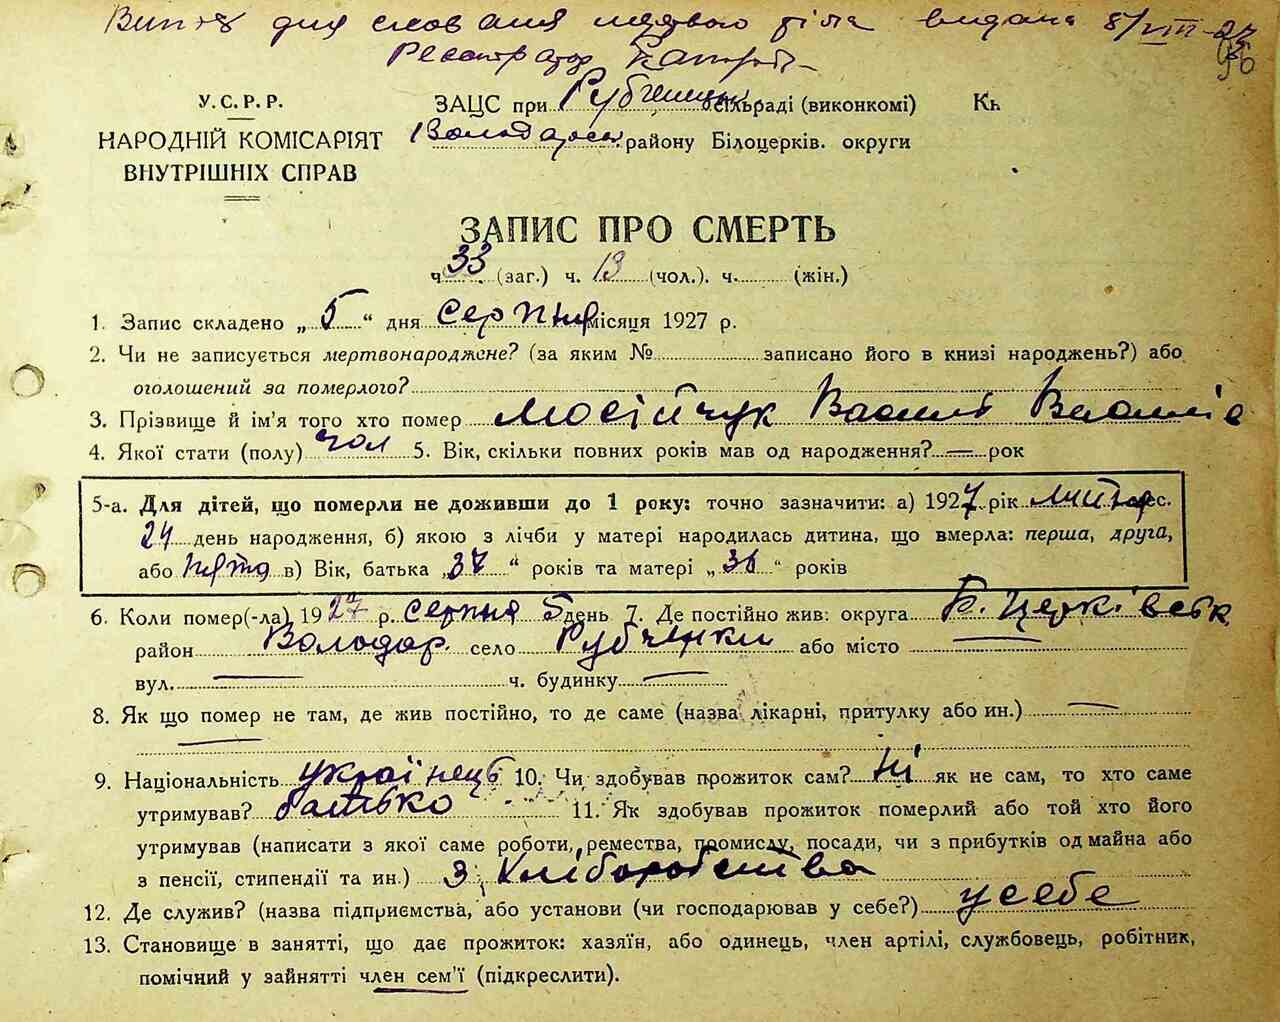 Витяг для сховання мертвого тіла видана 8/VIII-27
Реєстратор
96
У.С.Р.Р.
НАРОДНІЙ КОМІСАРІЯТ
ВНУТРІШНІХ СПРАВ
ЗАЦС при Рубченецьк. сільраді (виконкомі) Кн
Володарськ. району Білоцерків. округи
ЗАПИС ПРО СМЕРТЬ
ч. 33 (заг.) ч. 13 (чол.). ч. (жін.)
1. Запис складено „ 5 “ дня серпня місяця 1927 р.
2. Чи не записується мертвонароджене? (за яким № записано його в книзі народжень?) або
оголошений за померлого?
3. Прізвище й ім'я того хто помер Мосійчук Василь
4. Якої статі (полу) чол 5. Вік, скільки повних років мав од народження? — рок
5-а. Для дітей, що померли не доживши до 1 року: точно зазначити: а) 1927 рік лютар мес.
24 день народження, б) якою з лічби у матері народилась дитина, що вмерла: перша, друга,
або пята в) Вік, батька „ 37 “ років та матері „ 36 “ років
6. Коли помер(-ла) 1927 р. серпня 5 день 7. Де постійно жив: округа Б. Церківськ
район Володар. село Рубченки або місто —
вул. — ч. будинку —
8. Як що помер не там, де жив постійно, то де саме (назва лікарні, притулку або ин.) —
9. Національність українець 10. Чи здобував прожиток сам? Ні як не сам, то хто саме
утримував? батько 11. Як здобував прожиток померлий або той хто його
утримував (написати з якої саме роботи, ремества, промислу, посади, чи з прибутків од майна або
з пенсії, стипендії та ин.) З хліборобства
12. Де служив? (назва підприємства, або установи (чи господарював у себе?) у себе
13. Становище в занятті, що дає прожиток: хазяїн, або одинець, член артілі, службовець, робітник,
помічний у зайнятті член сем'ї (підкреслити).